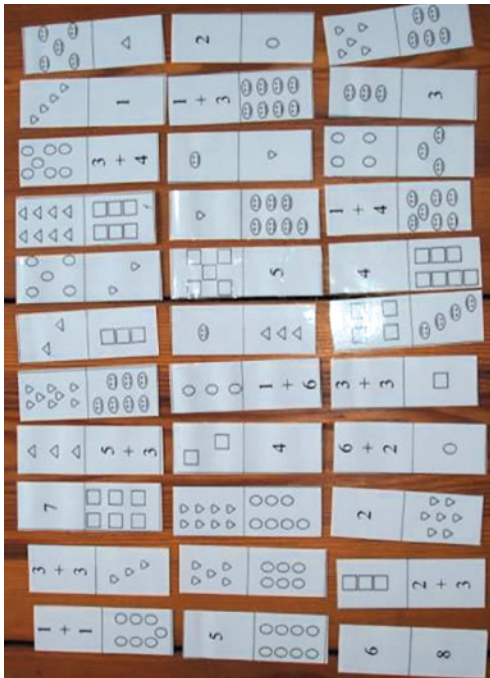 2
1
1 + 3
3
3 + 4
1 + 4
5
4
1 + 6
3 + 3
5 + 3
4
6 + 2
7
2
3 + 3
2 + 3
1 + 1
5
6
8